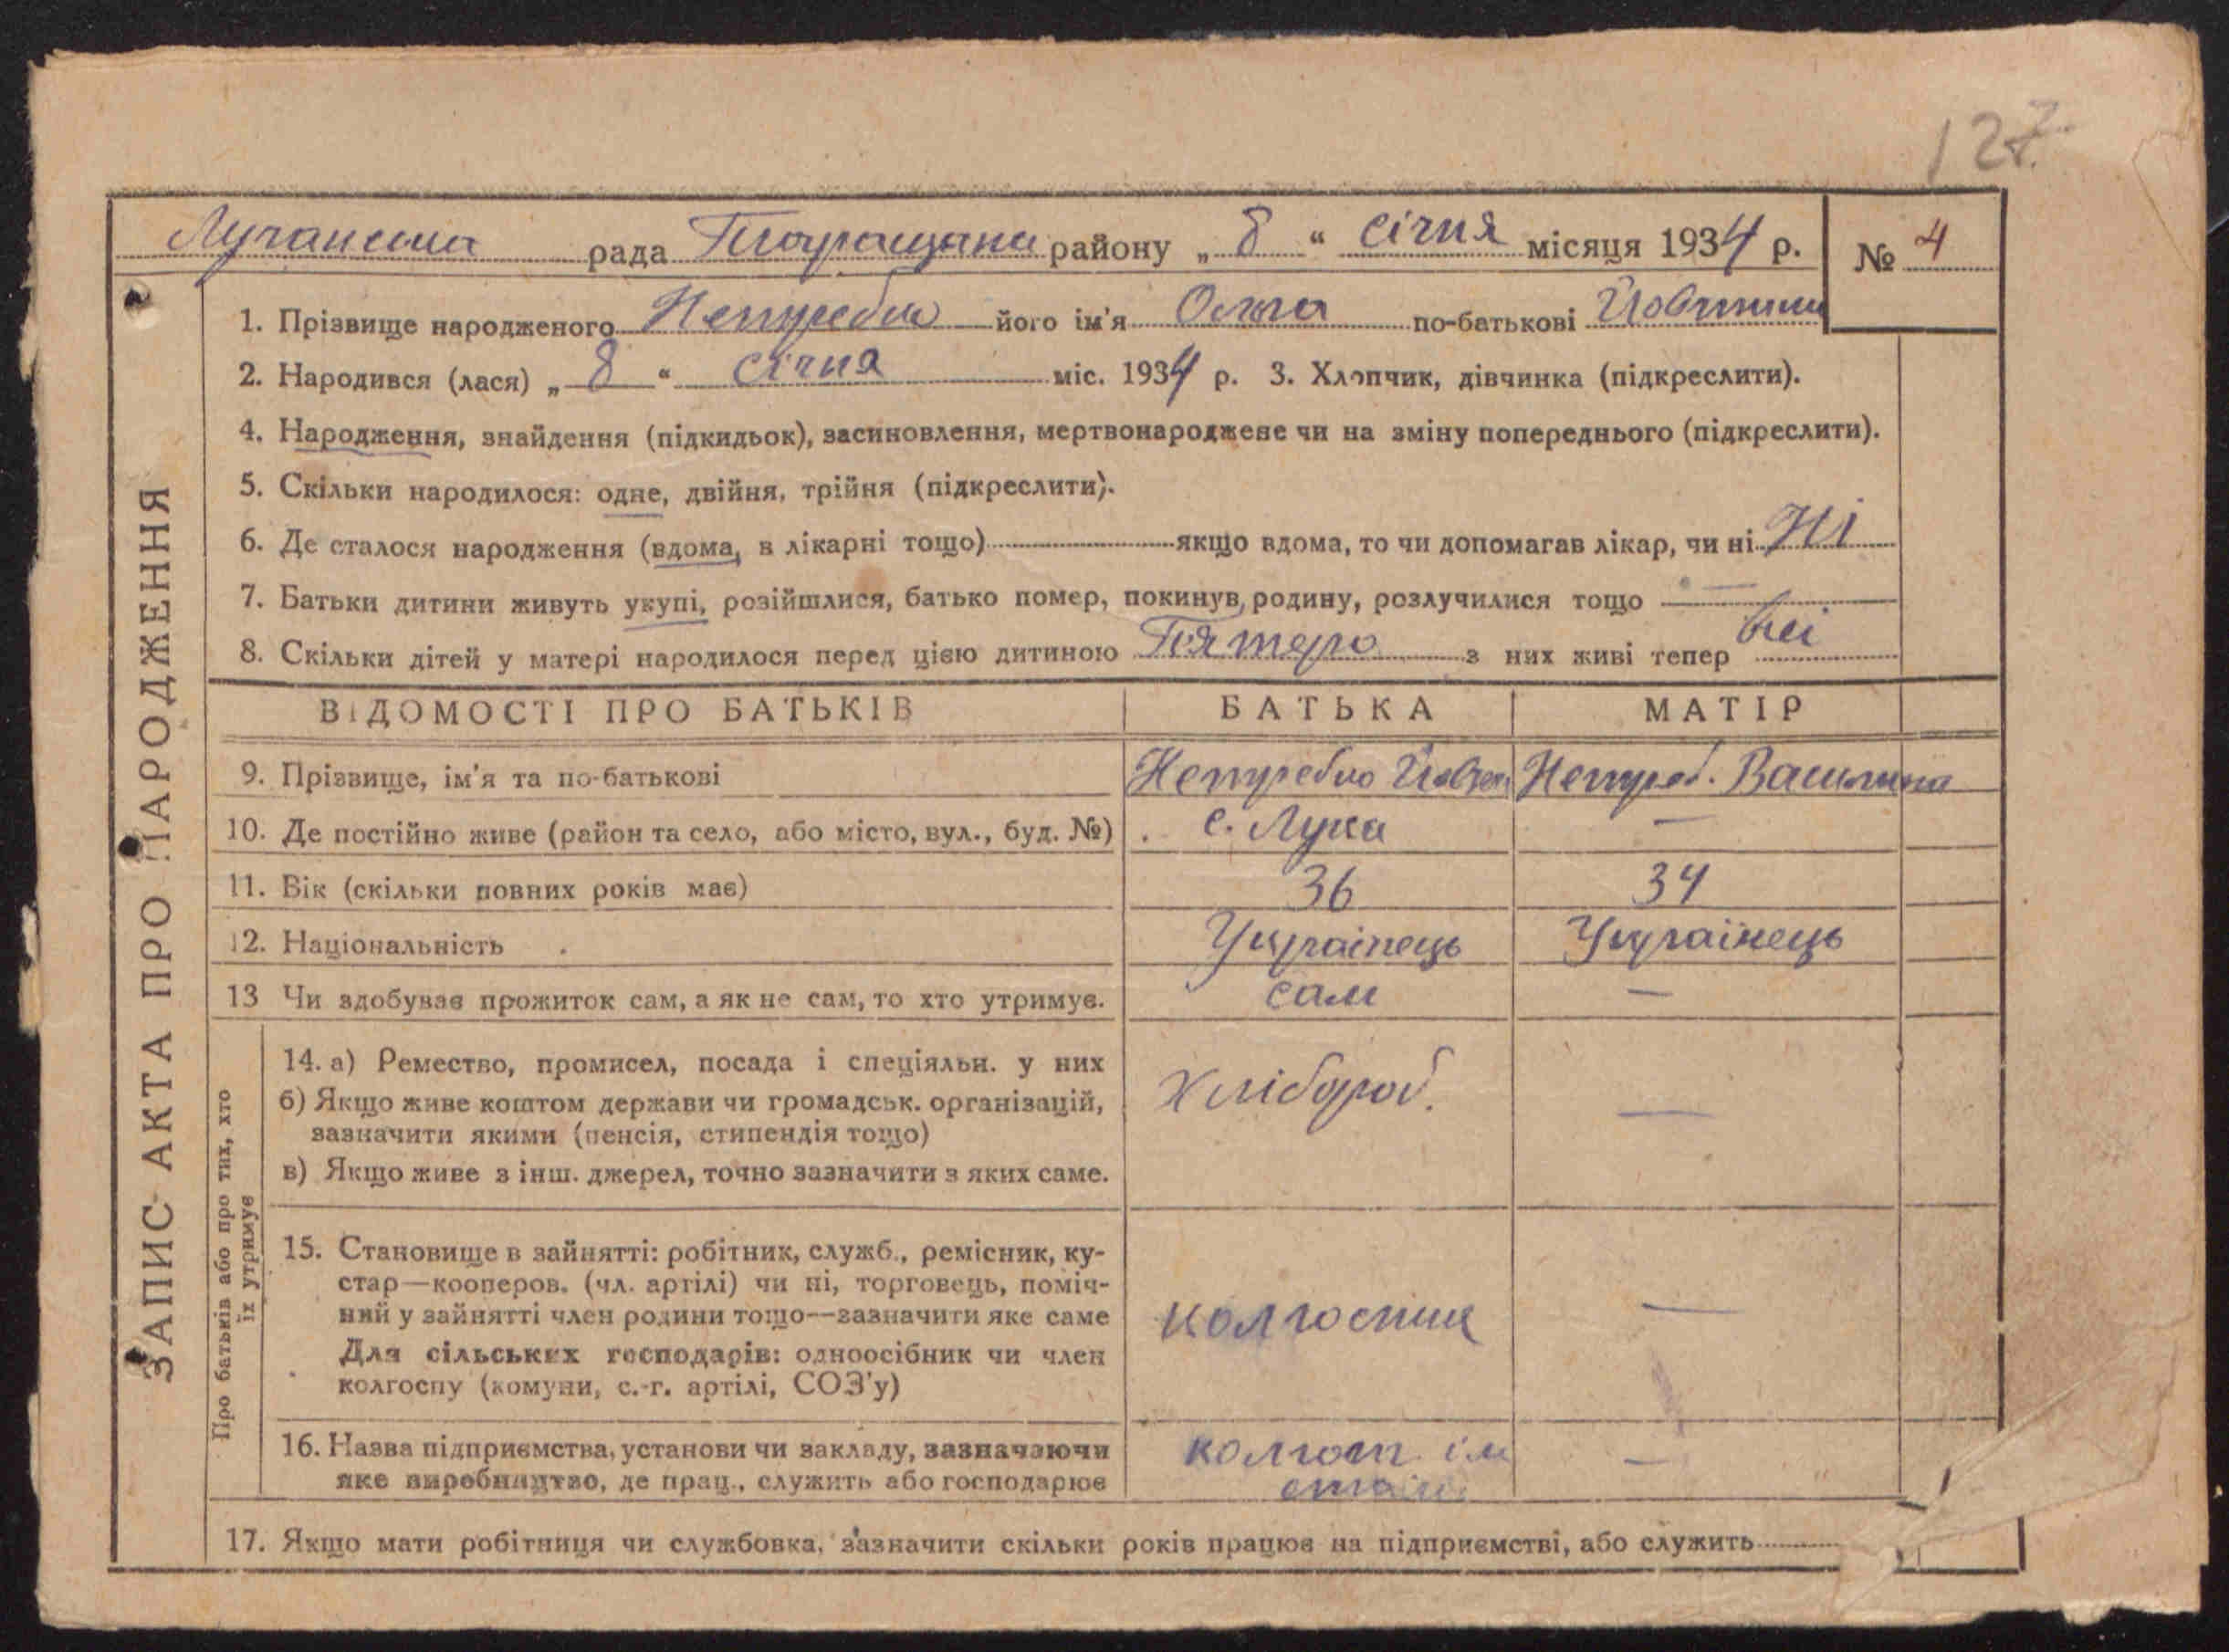 127.
рада району „ 8 “ січня місяця 1934 р. № 4
1. Прізвище народженого його ім'я Ольга по-батькові
2. Народився (лася) „ 8 “ січня міс. 1934 р. 3. Хлопчик, дівчинка (підкреслити).
4. Народження, знайдення (підкидьок), засиновлення, мертвонароджене чи на зміну попереднього (підкреслити).
5. Скільки народилося: одне, двійня, трійня (підкреслити).
6. Де сталося народження (вдома, в лікарні тощо) якщо вдома, то чи допомагав лікар, чи ні Ні
7. Батьки дитини живуть укупі, розійшлися, батько помер, покинув, родину, розлучилися тощо —
8. Скільки дітей у матері народилося перед цією дитиною Пятеро з них живі тепер всі
ВІДОМОСТІ ПРО БАТЬКІВ БАТЬКА МАТІР
9. Прізвище, ім'я та по-батькові Непребно Василина
10. Де постійно живе (район та село, або місто, вул., буд. №) с. Лука —
11. Вік (скільки повних років має) 36 34
12. Національність Українець Українець
13 Чи здобуває прожиток сам, а як не сам, то хто утримує. сам —
14. а) Ремество, промисел, посада і спеціяльн. у них
б) Якщо живе коштом держави чи громадськ. організацій, Хлібороб. —
зазначити якими (пенсія, стипендія тощо)
в) Якщо живе з інш. джерел, точно зазначити з яких саме.
15. Становище в зайнятті: робітник, служб., ремісник, ку-
стар—кооперов. (чл. артілі) чи ні, торговець, поміч-
ний у зайнятті член родини тощо—зазначити яке саме колгоспник —
Для сільських господарів: одноосібник чи член
колгоспу (комуни, с.-г. артілі, СОЗ'у)
16. Назва підприємства, установи чи закладу, зазначаючи колгосп ім —
яке виробництво, де прац., служить або господарює
17. Якщо мати робітниця чи службовка, зазначити скільки років працює на підприємстві, або служить
ЗАПИС АКТА ПРО НАРОДЖЕННЯ
Про батьків або про тих, хто
їх утримує